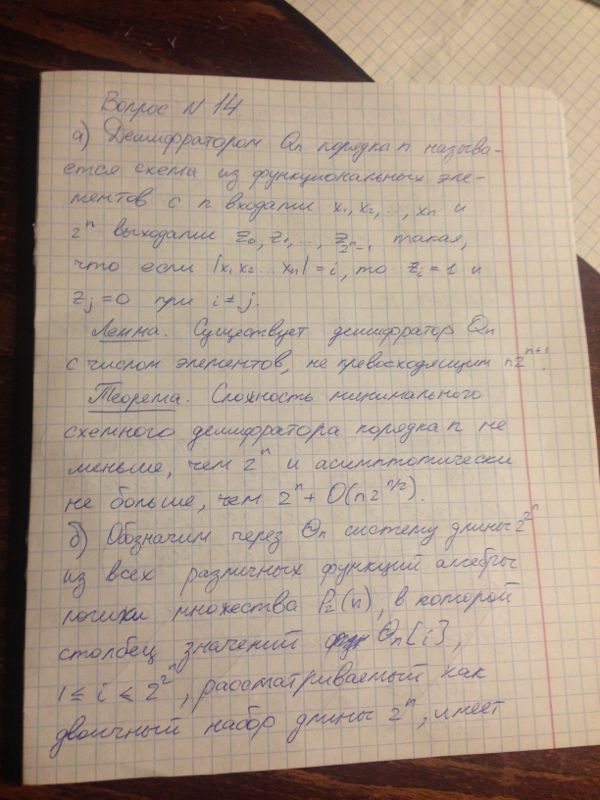 Вопрос N 14.
а) Дешифратором Qn порядка n называ-
ется схема из функциональных эле-
ментов с n входами x₁, x₂, ..., xn и
2ⁿ выходами z₀, z₁, ..., z_{2ⁿ-1} такая,
что если |x₁ x₂ ... xn| = i, то zᵢ = 1 и
zⱼ = 0 при i ≠ j.
Лемма. Существует дешифратор Qn
с числом элементов, не превосходящим n2ⁿ⁺¹.
Теорема. Сложность минимального
схемного дешифратора порядка n не
меньше, чем 2ⁿ и асимптотически
не больше, чем 2ⁿ + O(n2^{n/2}).
б) Обозначим через Θn систему длины 2^{2ⁿ}
из всех различных функций алгебры
логики множества P₂(n), в которой
столбец значений Θn[i],
1 ≤ i ≤ 2^{2ⁿ}, рассматриваемый как
двоичный набор длины 2ⁿ, имеет